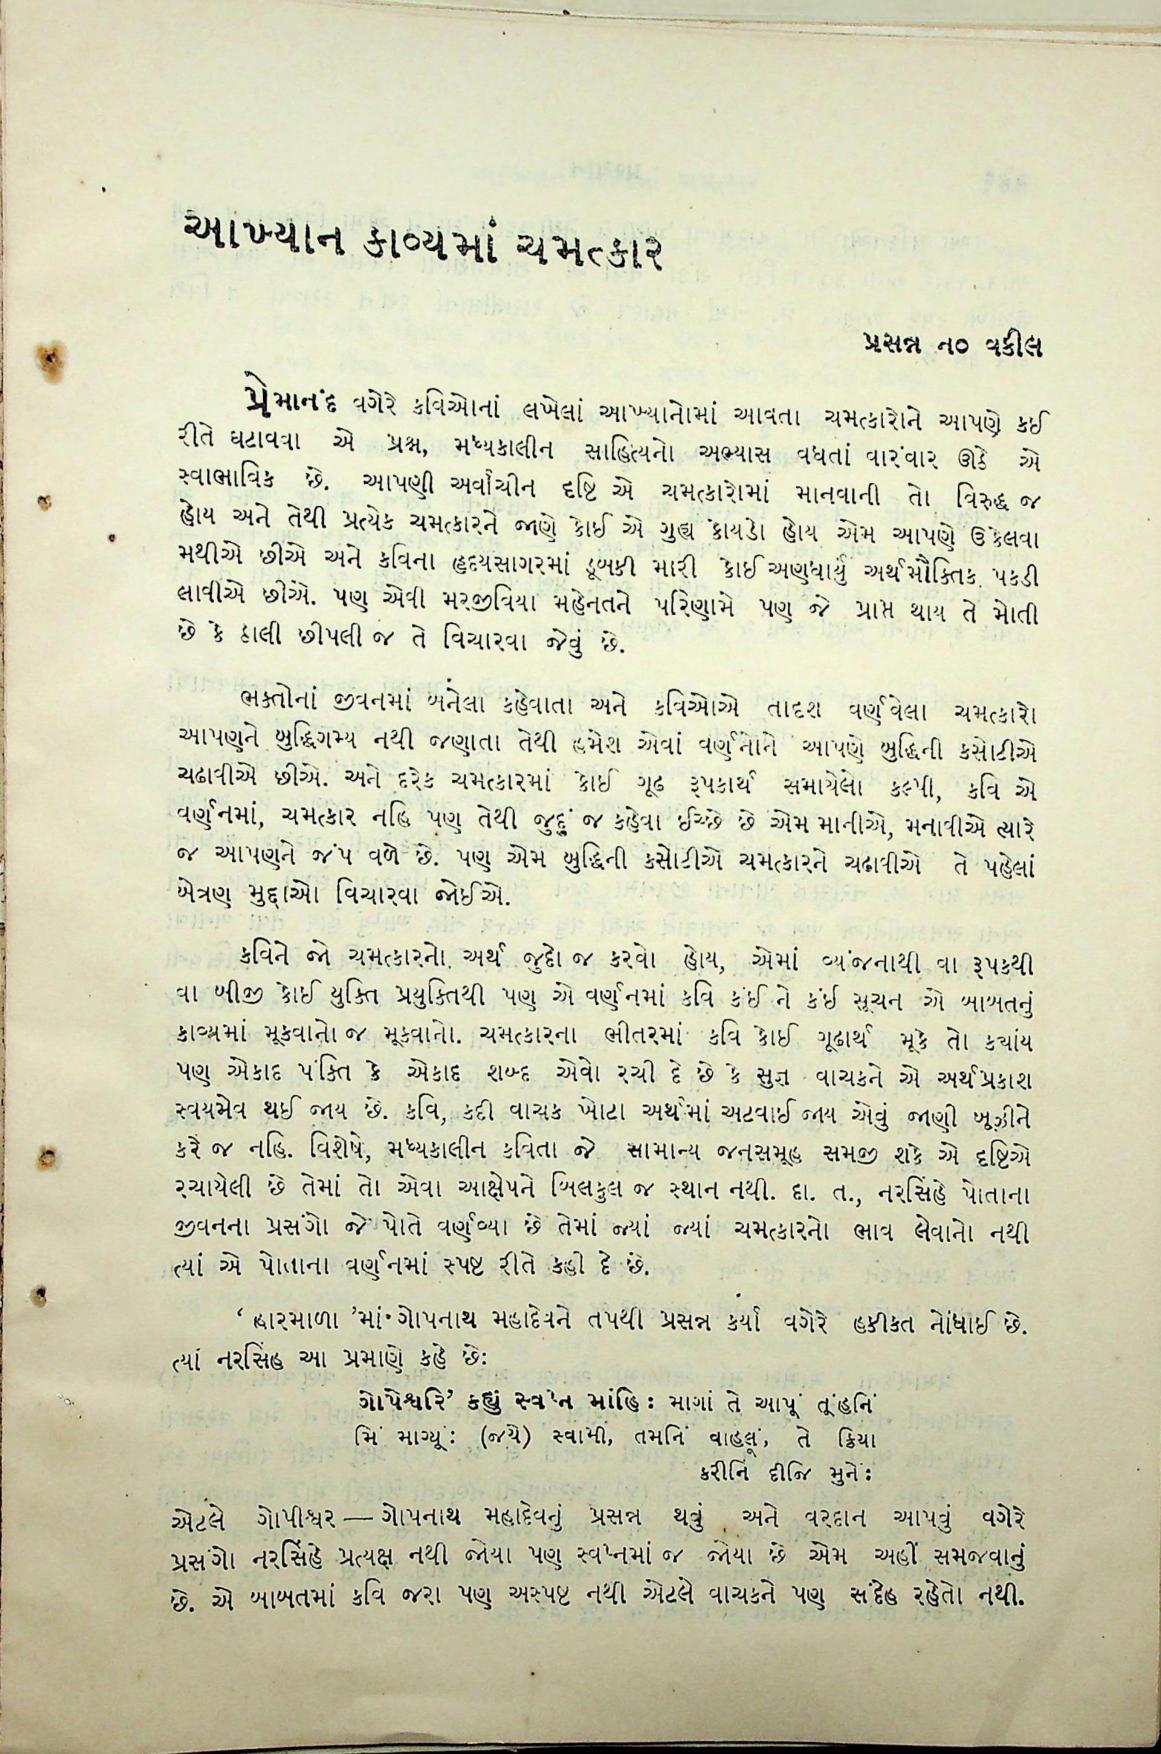 આખ્યાન કાવ્યમાં ચમત્કાર
પ્રસન્ન ન૦ વકીલ
પ્રેમાનંદ વગેરે કવિઓનાં લખેલાં આખ્યાનોમાં આવતા ચમત્કારોને આપણે કઈ
રીતે ઘટાવવા એ પ્રશ્ન, મધ્યકાલીન સાહિત્યનો અભ્યાસ વધતાં વારંવાર ઊઠે એ
સ્વાભાવિક છે. આપણી અર્વાચીન દૃષ્ટિ એ ચમત્કારોમાં માનવાની તો વિરુદ્ધ જ
હોય અને તેથી પ્રત્યેક ચમત્કારને જાણે કોઈ એ ગુહ્ય કોયડો હોય એમ આપણે ઉકેલવા
મથીએ છીએ અને કવિના હૃદયસાગરમાં ડૂબકી મારી કોઈ અણધાર્યું અર્થમૌક્તિક પકડી
લાવીએ છીએ. પણ એવી મરજીવિયા મહેનતને પરિણામે પણ જે પ્રાપ્ત થાય તે મોતી
છે કે ઠાલી છીપલી જ તે વિચારવા જેવું છે.
ભક્તોનાં જીવનમાં બનેલા કહેવાતા અને કવિઓએ તાદૃશ વર્ણવેલા ચમત્કારો
આપણને બુદ્ધિગમ્ય નથી જણાતા તેથી હમેશ એવાં વર્ણનોને આપણે બુદ્ધિની કસોટીએ
ચઢાવીએ છીએ. અને દરેક ચમત્કારમાં કોઈ ગૂઢ રૂપકાર્થ સમાયેલો કલ્પી, કવિ એ
વર્ણનમાં, ચમત્કાર નહિ પણ તેથી જુદું જ કહેવા ઈચ્છે છે એમ માનીએ, મનાવીએ ત્યારે
જ આપણને જંપ વળે છે. પણ એમ બુદ્ધિની કસોટીએ ચમત્કારને ચઢાવીએ તે પહેલાં
બેત્રણ મુદ્દાઓ વિચારવા જોઈએ.
કવિને જો ચમત્કારનો અર્થ જુદો જ કરવો હોય, એમાં વ્યંજનાથી વા રૂપકથી
વા બીજી કોઈ યુક્તિ પ્રયુક્તિથી પણ એ વર્ણનમાં કવિ કંઈ ને કંઈ સૂચન એ બાબતનું
કાવ્યમાં મૂકવાનો જ મૂકવાનો. ચમત્કારના ભીતરમાં કવિ કોઈ ગૂઢાર્થ મૂકે તો કયાંય
પણ એકાદ પંક્તિ કે એકાદ શબ્દ એવો રચી દે છે કે સુજ્ઞ વાચકને એ અર્થપ્રકાશ
સ્વયમેવ થઈ જાય છે. કવિ, કદી વાચક ખોટા અર્થમાં અટવાઈ જાય એવું જાણી બૂઝીને
કરે જ નહિ. વિશેષે, મધ્યકાલીન કવિતા જે સામાન્ય જનસમૂહ સમજી શકે એ દૃષ્ટિએ
રચાયેલી છે તેમાં તો એવા આક્ષેપને બિલકુલ જ સ્થાન નથી. દા. ત., નરસિંહે પોતાના
જીવનના પ્રસંગો જે પોતે વર્ણવ્યા છે તેમાં જ્યાં જ્યાં ચમત્કારનો ભાવ લેવાનો નથી
ત્યાં એ પોતાના વર્ણનમાં સ્પષ્ટ રીતે કહી દે છે.
‘હારમાળા’માં ગોપનાથ મહાદેવને તપથી પ્રસન્ન કર્યા વગેરે હકીકત નોંધાઈ છે.
ત્યાં નરસિંહ આ પ્રમાણે કહે છે:
ગોપેશ્વરિં કહ્યું સ્વપ્ન માંહિ: માગાં તે આપૂં તૂંહનિં
મિં માગ્યૂં: (જયૈ) સ્વામી, તમનિં વાહલૂં, તે ક્રિયા
કરીનિં દીજિ મુને:
એટલે ગોપીશ્વર — ગોપનાથ મહાદેવનું પ્રસન્ન થવું અને વરદાન આપવું વગેરે
પ્રસંગો નરસિંહે પ્રત્યક્ષ નથી જોયા પણ સ્વપ્નમાં જ જોયા છે એમ અહીં સમજવાનું
છે. એ બાબતમાં કવિ જરા પણ અસ્પષ્ટ નથી એટલે વાચકને પણ સંદેહ રહેતો નથી.